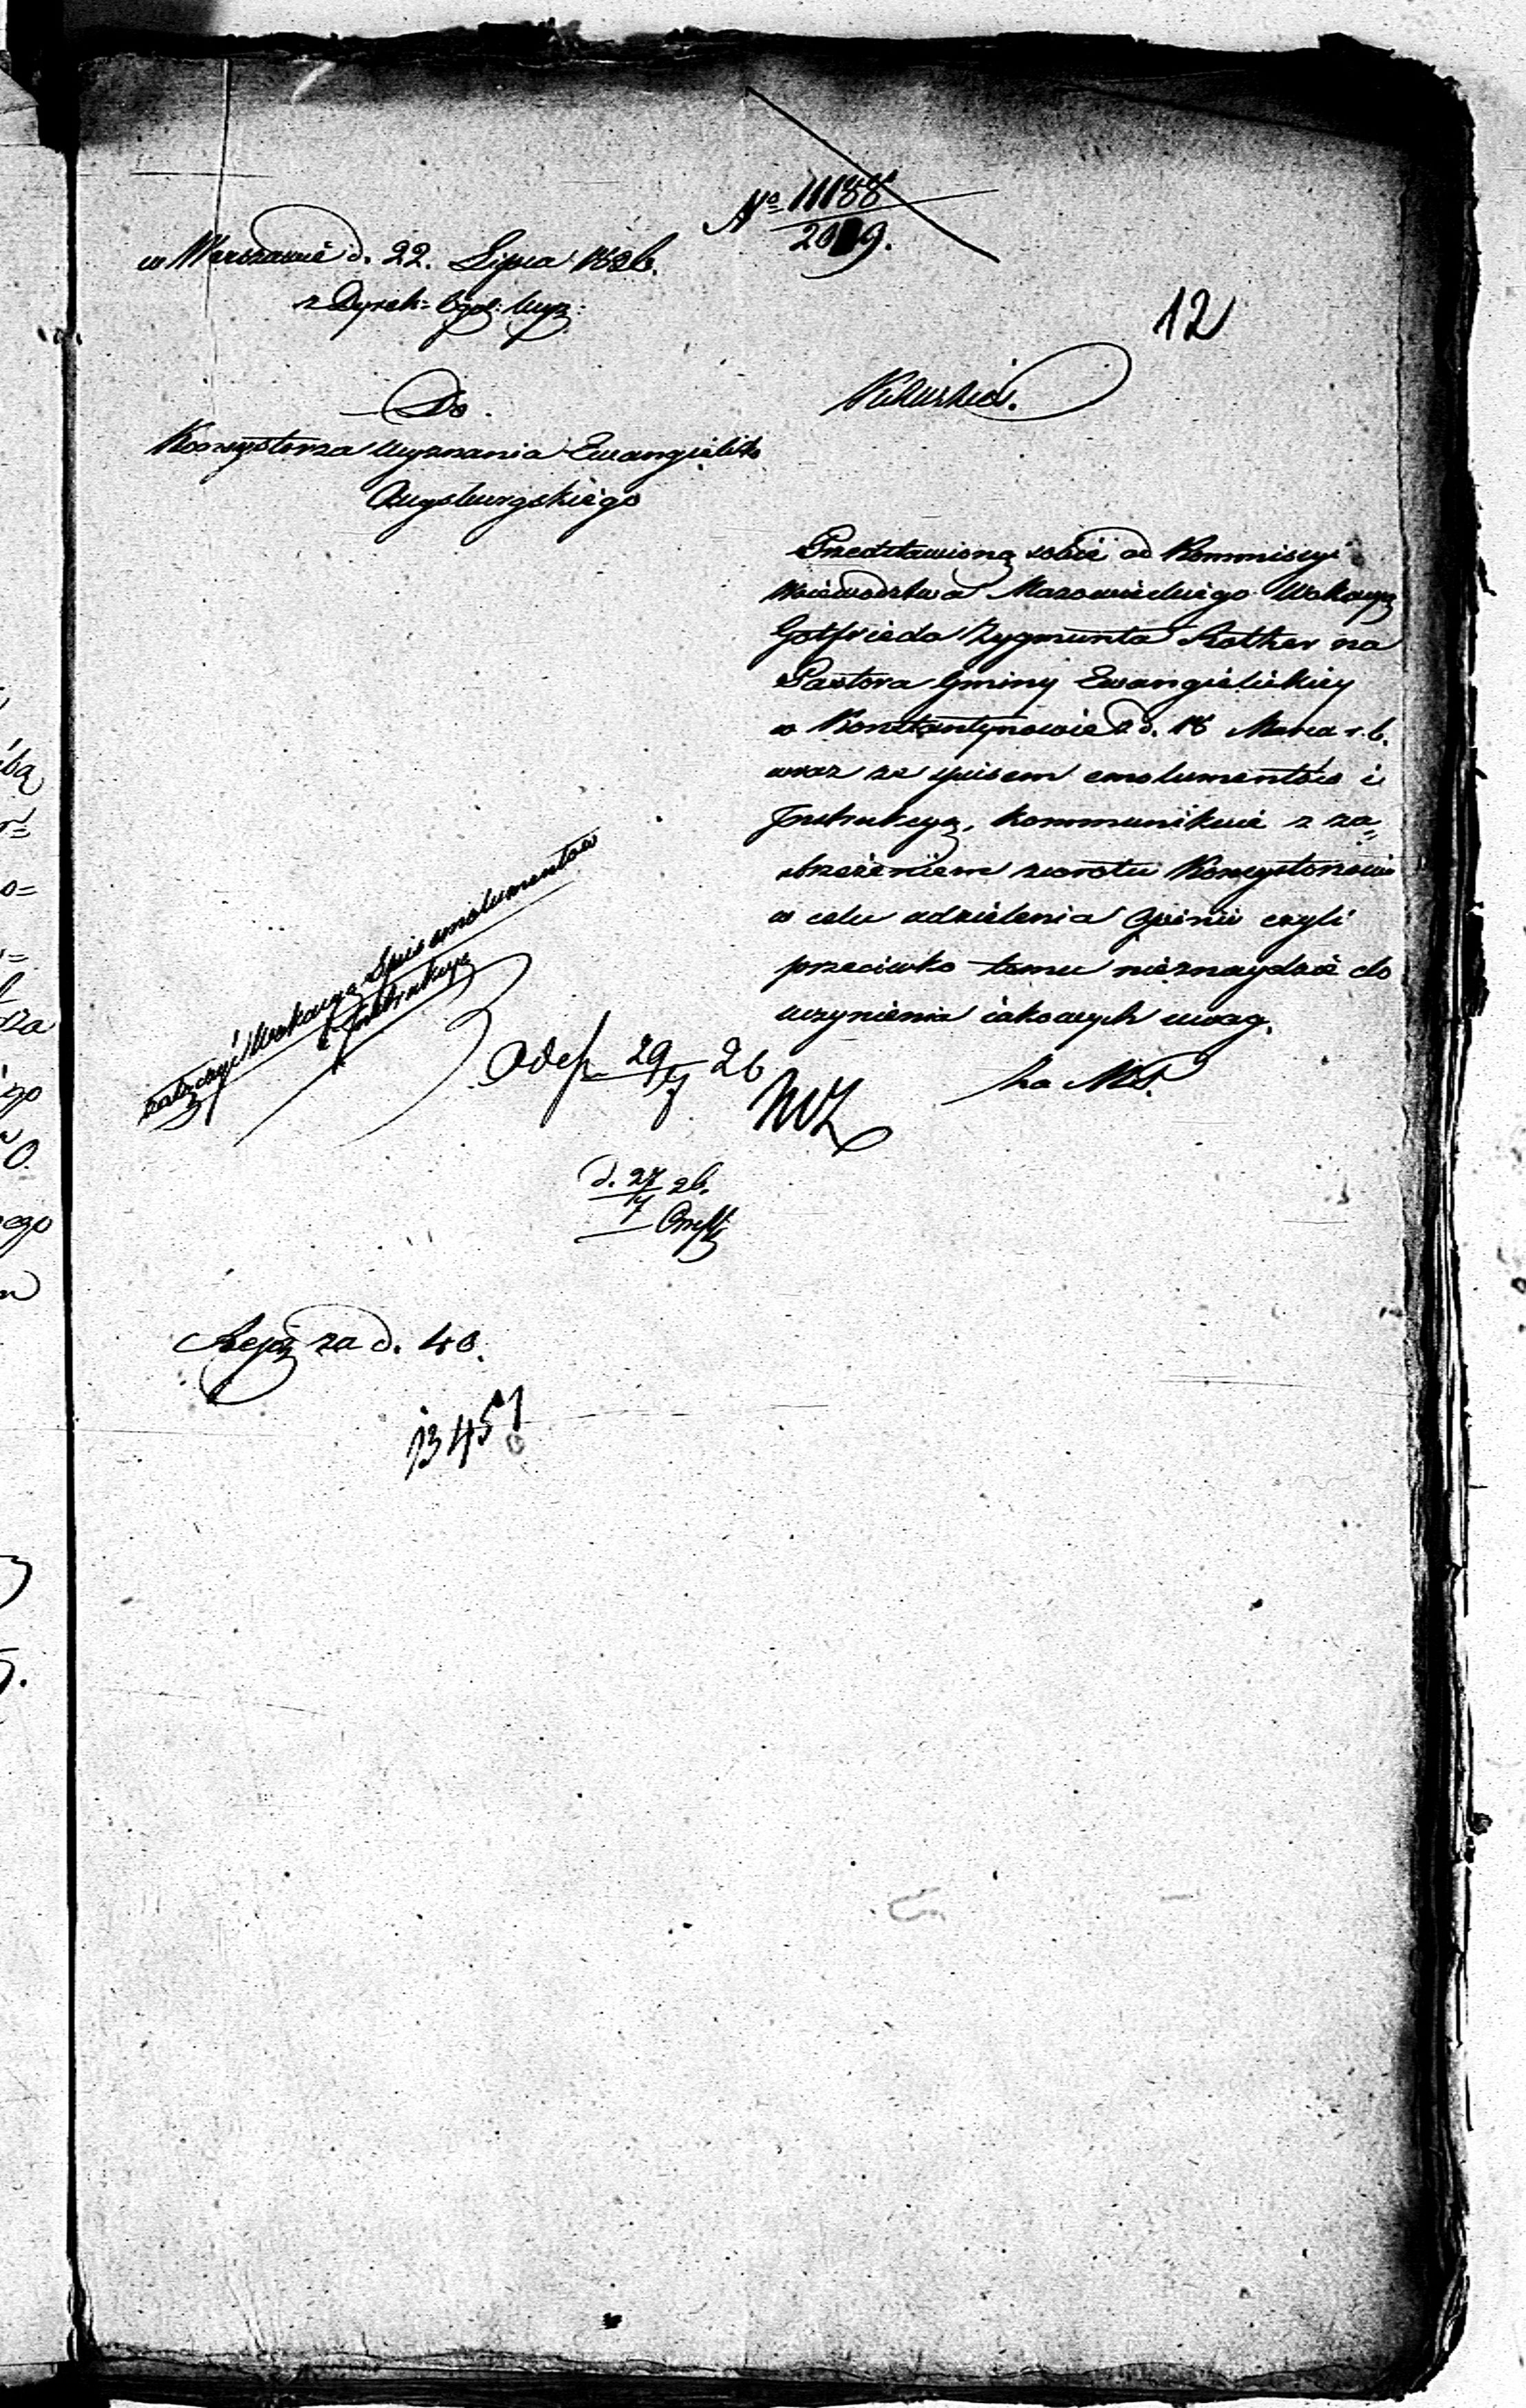 Nº 11188
2029.
w Warszawie d. 22. Lipca 1826.
z Dyrek= Ogol: Wyz:
12
Do
Konsystorza Wyznania Ewangielicko
Augsburgskiego
Przedstawioną sobie od Kommissyi
Województwa Mazowieckiego Wokacyą
Gotfrieda Zygmunta Rother na
Pastora Gminy Ewangielickiey
w Konstantynowie z d. 18 Marca r. b.
wraz ze spisem emolumentów i
Instrukcyą, kommunikuie z za=
strzeżeniem zwrotu Konsystorzowi
w celu udzielenia Opinii czyli
przeciwko temu nieznaydzie do
uczynienia iakowych uwag.
załączyć Wokacyą Spis emolumentów
i Instrukcyą
29/7 26
za M.P.
d. 27/7 26.
za d. 40.
13451